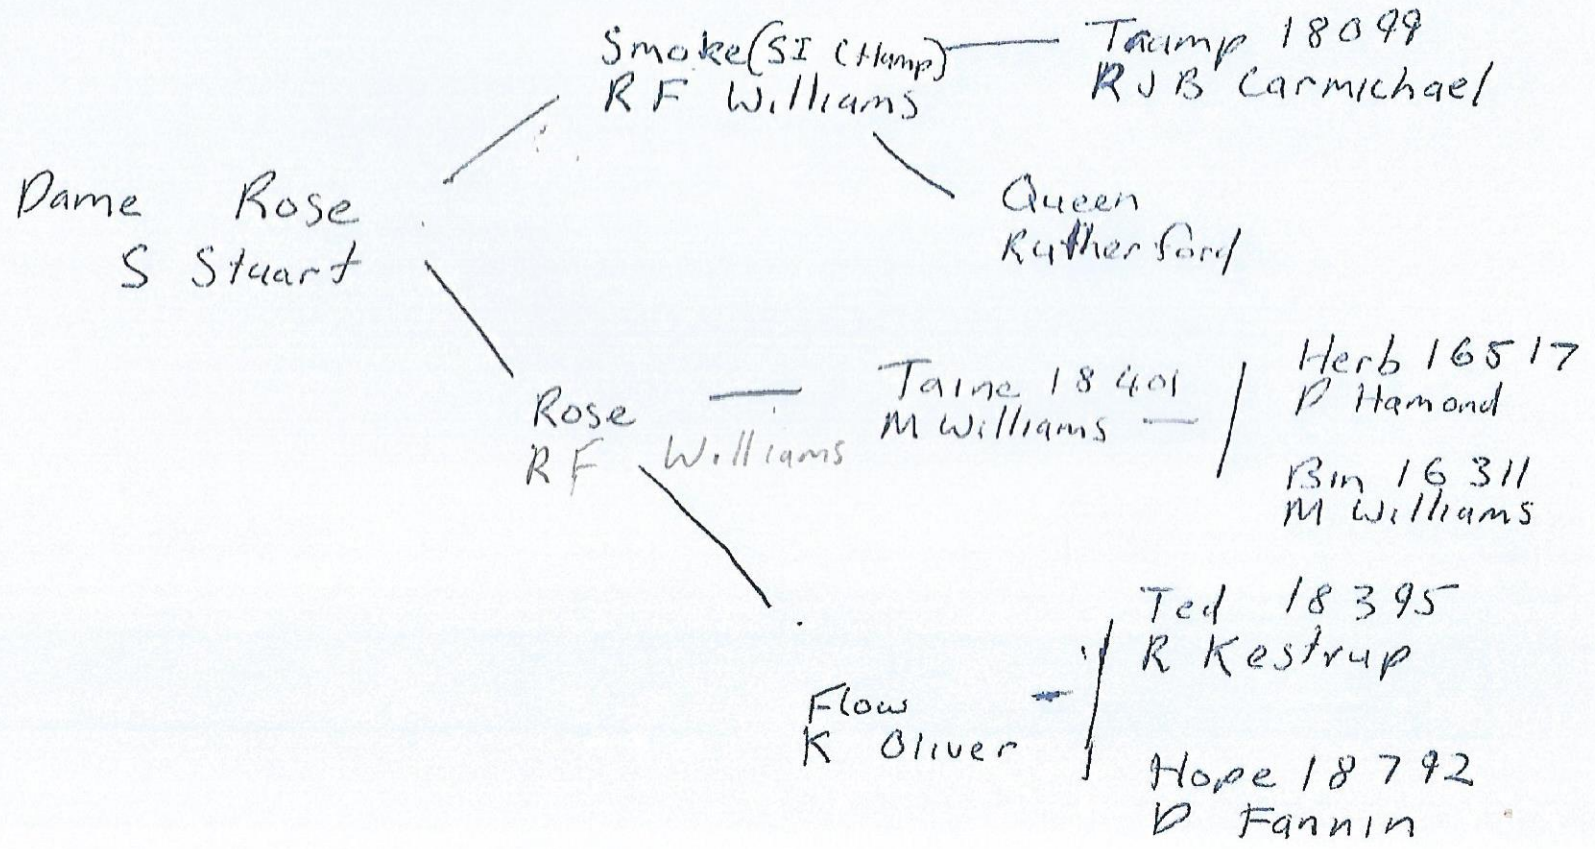 Smoke (SI Champ)
R F Williams
Tramp 18099
R J B Carmichael
Queen
Rutherford
Dame Rose
S Stuart
Rose
R F Williams
Taine 18401
M Williams
Herb 16517
P Hamond
Bin 16311
M Williams
Flow
K Oliver
Ted 18395
R Kestrup
Hope 18792
D Fannin